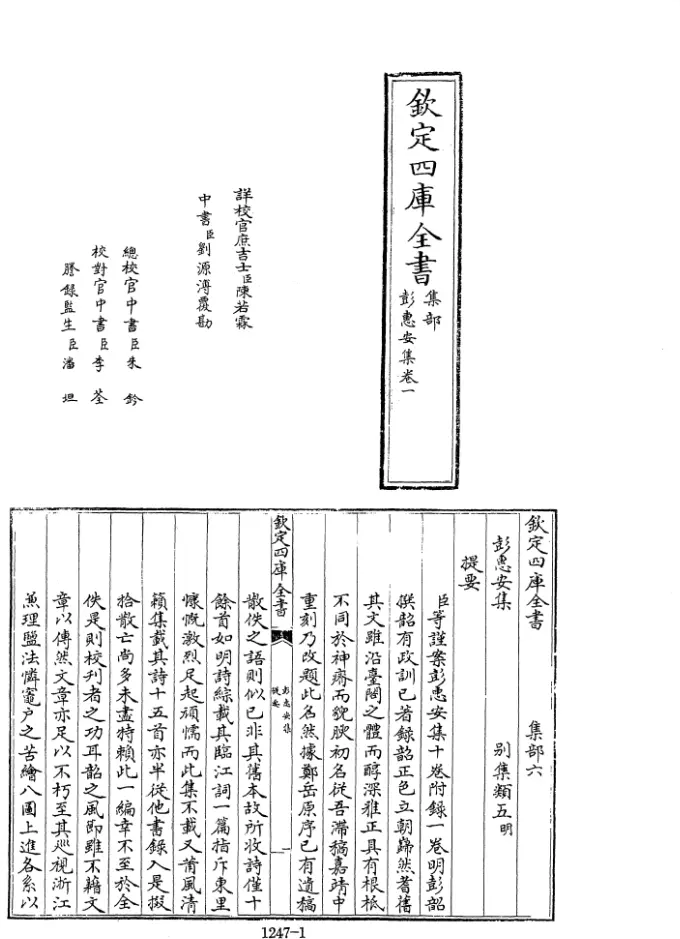 欽定四庫全書
集部
彭惠安集卷一
詳校官庶吉士臣陳若霖
中書臣劉源溥覆勘
總校官中書臣朱鈐
校對官中書臣李荃
謄錄監生臣潘坦
欽定四庫全書 集部六
彭惠安集 别集類五明
提要
臣等謹案彭惠安集十卷附録一卷明彭韶
撰韶有政訓已著録韶正色立朝巋然耆舊
其文雖沿臺閣之體而醇深雅正具有根柢
不同於神瘠而貌腴初名從吾滯稿嘉靖中
重刻乃改題此名然據鄭岳原序已有遺稿
欽定四庫全書
彭惠安集
提要
一
散佚之語則似已非其舊本故所收詩僅十
餘首如明詩綜載其臨江詞一篇指斥東里
慷慨激烈足起頑懦而此集不載又莆風清
籟集載其詩十五首亦半從他書録入是掇
拾散亡尚多未盡特賴此一編幸不至於全
佚是則校刋者之功耳韶之風即雖不藉文
章以傳然文章亦足以不朽至其廵視浙江
兼理鹽法憐竈户之苦繪八圖上進各系以
1247-1